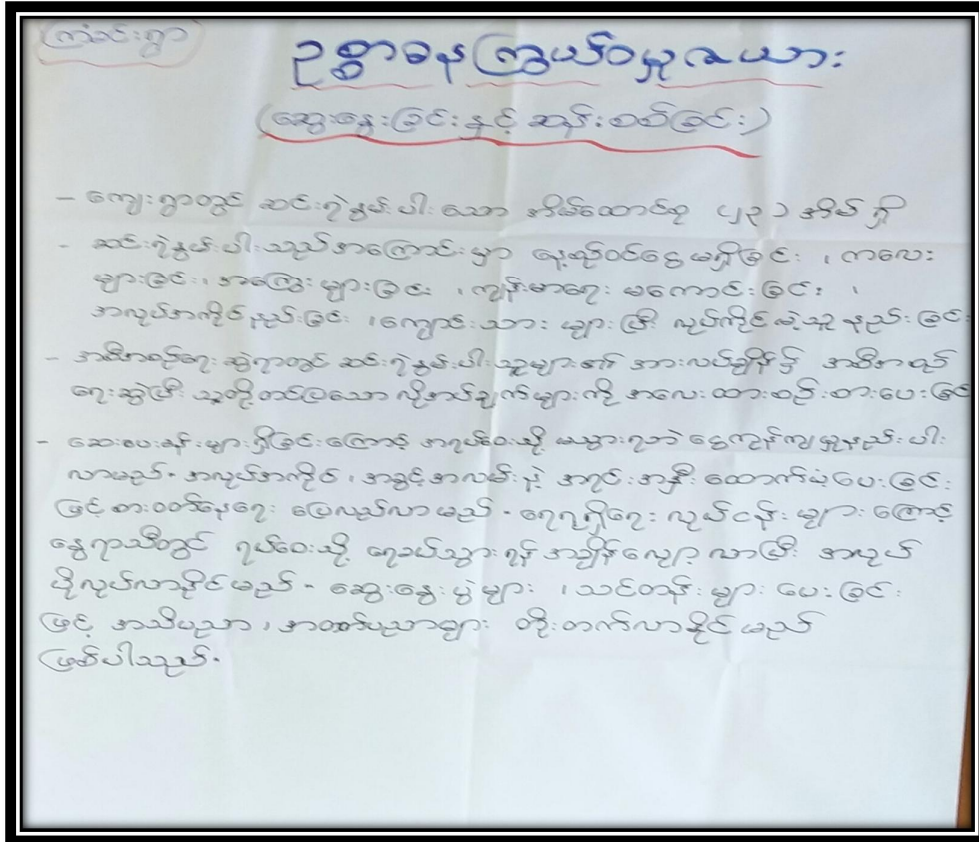 ကြံခင်းရွာ
ဥစ္စာဓနကြွယ်ဝမှုဇယား
(ဆွေးနွေးခြင်းနှင့် ဆန်းစစ်ခြင်း)
- ကျေးရွာတွင် ဆင်းရဲနွမ်းပါးသော အိမ်ထောင်စု (၂၃) အိမ်ရှိ
- ဆင်းရဲနွမ်းပါးသည့်အကြောင်းမှာ ပုံမှန်ဝင်ငွေမရှိခြင်း ၊ ကလေး
များခြင်း ၊ အကြွေးများခြင်း ၊ ကျန်းမာရေး မကောင်းခြင်း ၊
အလုပ်အကိုင်နည်းခြင်း ၊ ကျောင်းသား များပြီး လုပ်ကိုင်မဲ့သူ နည်းခြင်း
- အစီအစဉ်ရေးဆွဲရာတွင် ဆင်းရဲနွမ်းပါးသူများ၏ အားလပ်ချိန်၌ အစီအစဉ်
ရေးဆွဲပြီး သူတို့တင်ပြသော လိုအပ်ချက်များကို အလေးထားစဉ်းစားပေးခြင်း
- ဆေးပေးခန်းများရှိခြင်းကြောင့် အရပ်ဝေးသို့ မသွားရဘဲ ငွေကုန်ကျမှုနည်းပါး
လာမည်- အလုပ်အကိုင် ၊ အခွင့်အလမ်းနဲ့ အရင်းအနှီး ထောက်ပံ့ပေးခြင်း
ဖြင့် စားဝတ်နေရေး ပြေလည်လာမည် - ရေရရှိရေး လုပ်ငန်းများကြောင့်
နွေရာသီတွင် ရပ်ဝေးသို့ ရေခပ်သွားရန် အချိန်လျော့လာပြီး အလုပ်
ပိုလုပ်လာနိုင်မည် - ဆွေးနွေးပွဲများ ၊ သင်တန်းများ ပေးခြင်း
ဖြင့် အသိပညာ ၊ အတတ်ပညာများ တိုးတက်လာနိုင်မည်
ဖြစ်ပါသည်-